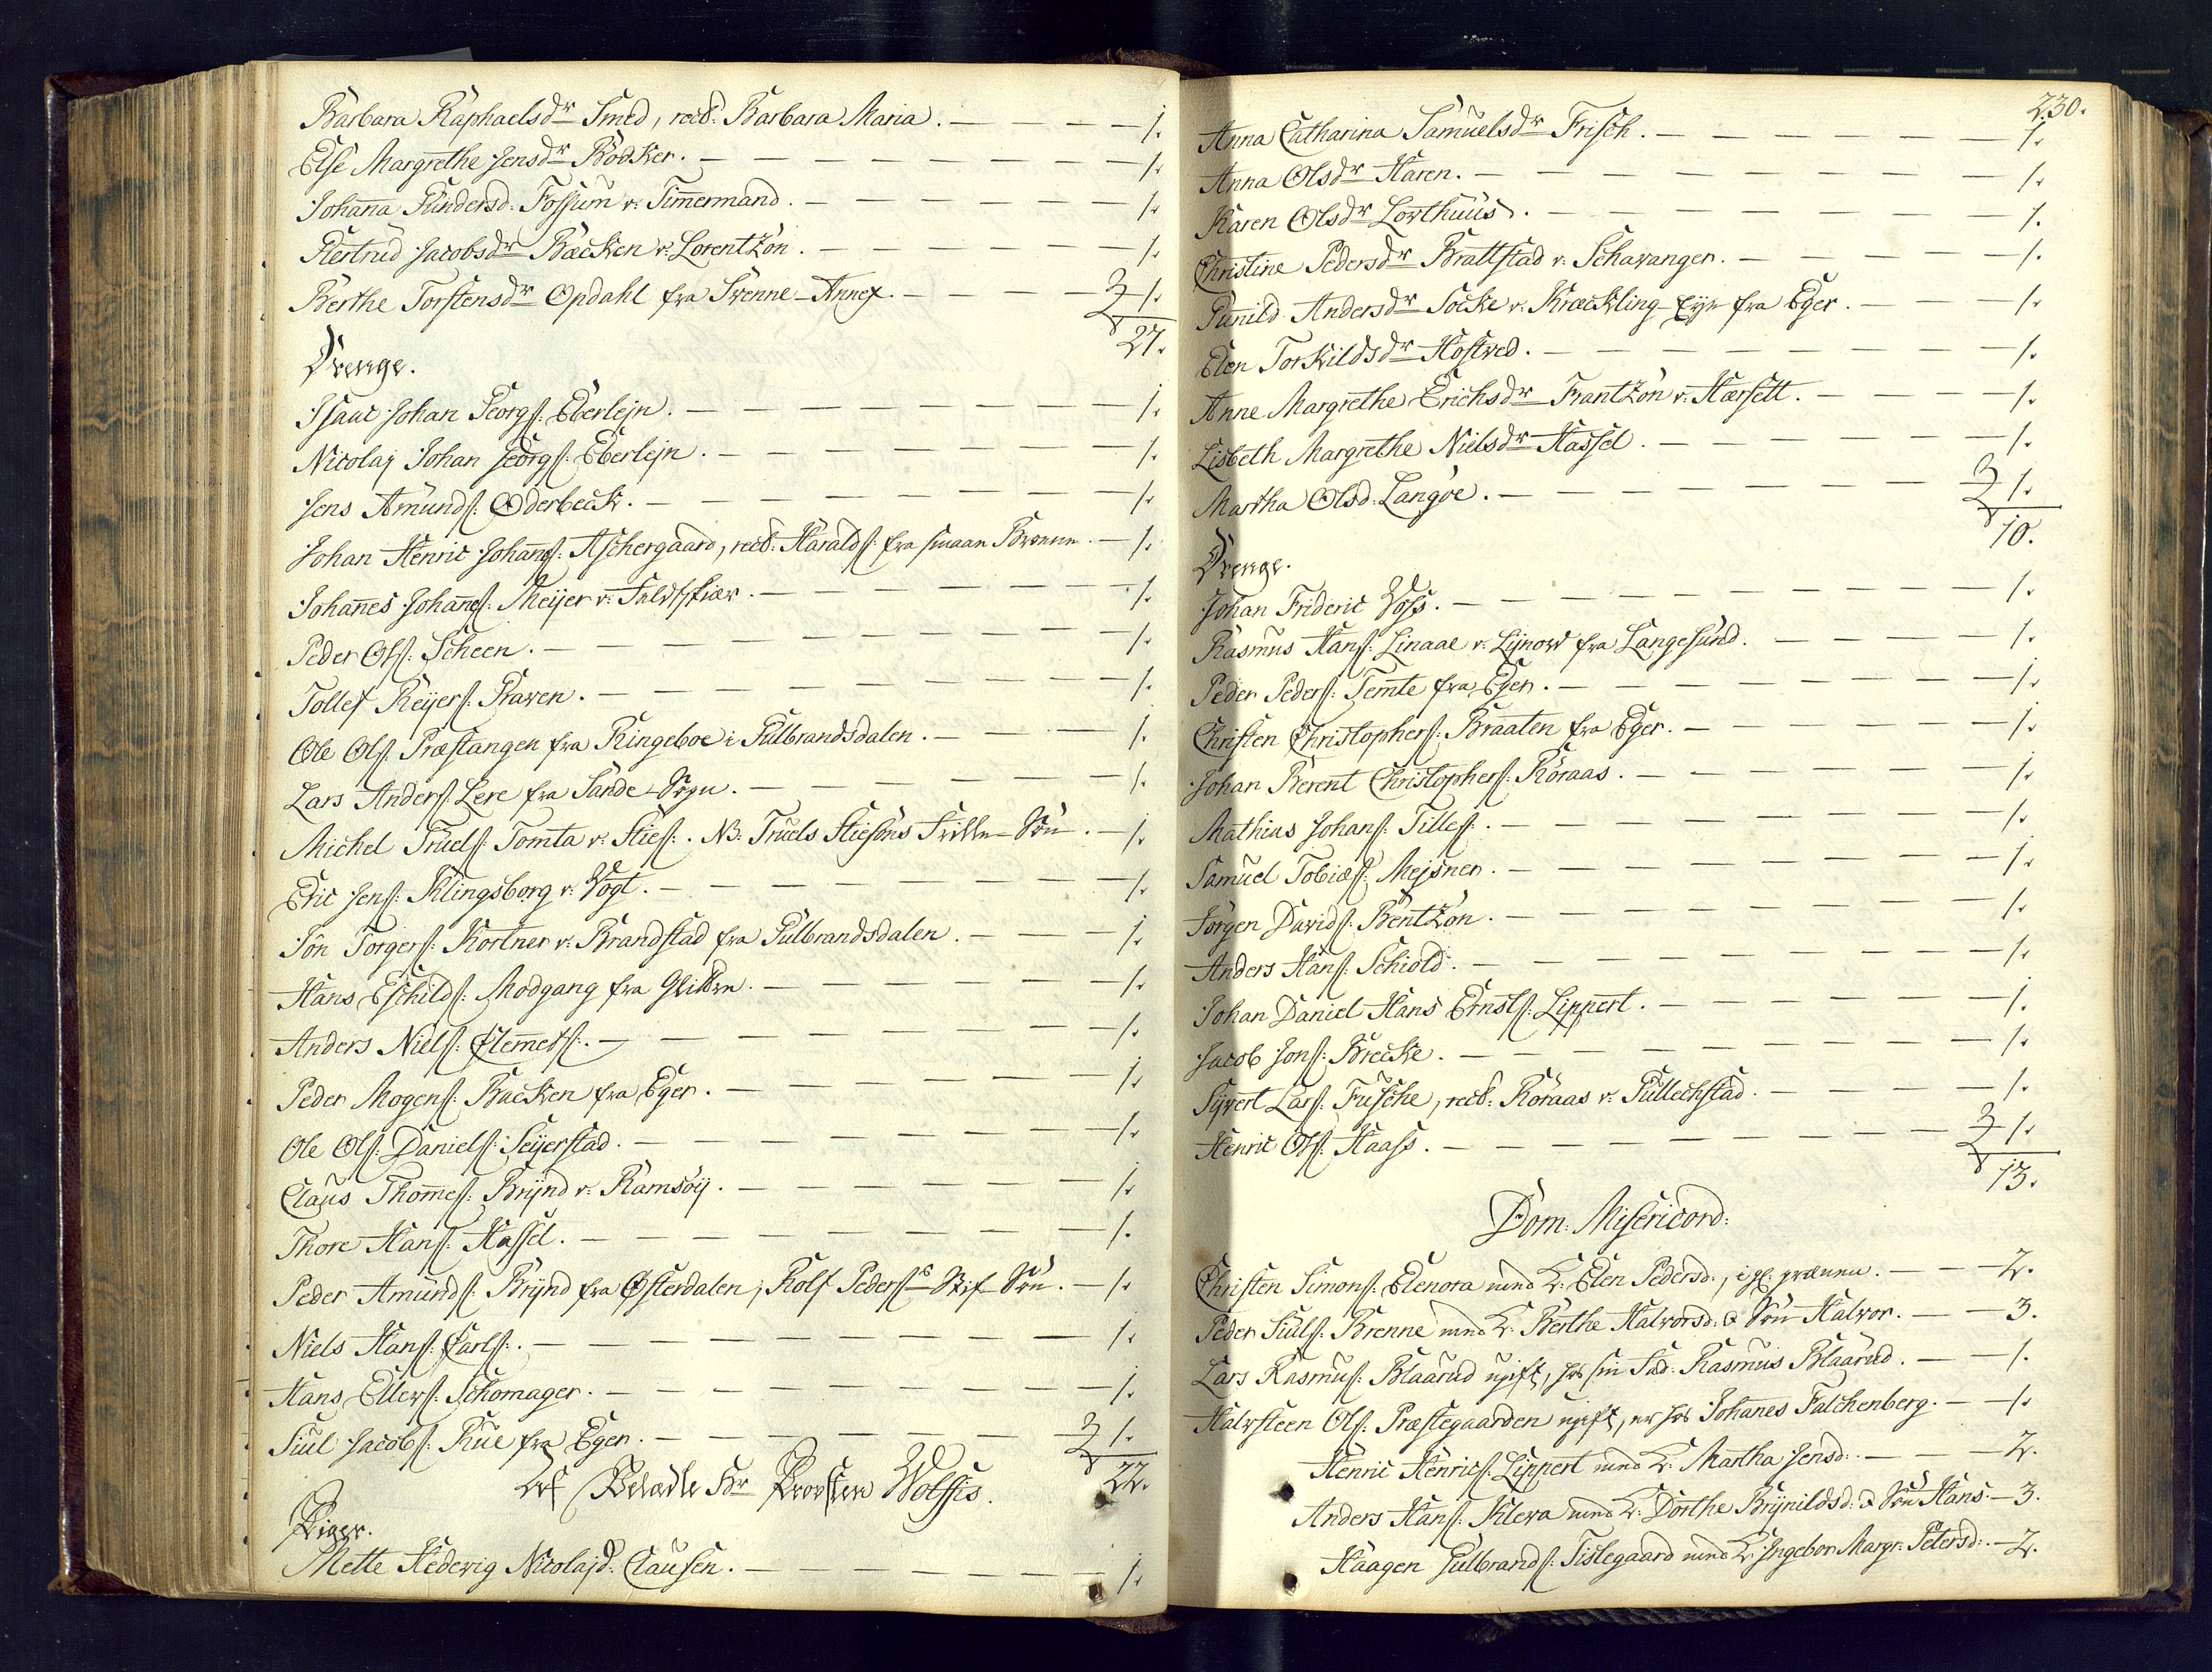 Barbara Raphaelsdr Smed, rect: Barbara Maria. — — — — 1.
Else Margrethe Jensdr Bödker. — — — — 1.
Johaña Gundersd: Fossum v: Tim̄ermand. — — — — 1.
Gertrud Jacobsdr Backen v: Lorentzön. — — — — 1.
Berthe Torstensdr Opdahl fra Svenne-Annex. — — — — 1.
27.
Drenge.
Isaac Johan Georgs: Eberlejn. — — — — 1.
Nicolaj Johan Georgs: Eberlejn. — — — — 1.
Jens Amunds: Oderbeck. — — — — 1.
Johan Henric Johañes: Aschergaard, rect: Haralds: fra — 1.
Johañes Johañes: Meijer v: — — — — 1.
Peder Ols: Scheen. — — — — 1.
Tollef Reijers: Raven. — — — — 1.
Ole Ols: Præstangen fra Ringeboe i Gulbrandsdalen. — — — — 1.
Lars Anders: Lere fra Sande-Sogn. — — — — 1.
Michel Truels: Tomta v: Sties:. NB: Truels Stiesöns Sön. — 1.
Eric Jens: Klingsborg v: Vogt. — — — — 1.
Jön Torgers: Kortner v: Brandstad fra Gulbrandsdalen. — — — 1.
Hans Eschilds: Modgang fra — — — — 1.
Anders Niels: Clemets:. — — — — 1.
Peder Mogens: Backen fra Eger. — — — — 1.
Ole Ols: Daniels: Seijerstad. — — — — 1.
Claus Thom̄es: Brÿnd v: Ramsöÿ. — — — — 1.
Thore Hans: Hassel. — — — — 1.
Peder Amunds: Brÿnd fra Østerdalen, Rolf Peders: Stif Sön. — 1.
Niels Hans: Carls:. — — — — 1.
Hans Ellevs: Schomager. — — — — 1.
Siul Jacobs: Rue fra Eger. — — — — 1.
22.
Hr Provsten Wolffis.
Piger.
Mette Hedevig Nicolajd: Clausen. — — — — 1.
230.
Anna Catharina Samuelsdr Frisch. — — — — 1.
Anna Olsdr Haren. — — — — 1.
Karen Olsdr Lovthuus. — — — — 1.
Christine Pedersdr Brattstad v: Schavanger. — — — — 1.
Gunild Andersdr Socke v: Kræckling- fra Eger. — — — 1.
Elen Torkildsdr Hostved. — — — — 1.
Anne Margrethe Erichsdr Frantzön v: Hærsett. — — — — 1.
Lisbeth Margrethe Nielsdr Hassel. — — — — 1.
Martha Olsd: Langöe. — — — — 1.
10.
Drenge.
Johan Frideric Voss. — — — — 1.
Rasmus Hans: Linaae v: Lÿnow fra Langesund. — — — — 1.
Peder Peders: Temte fra Eger. — — — — 1.
Christen Christophers: Braaten fra Eger. — — — — 1.
Johan Berent Christophers: Röraas. — — — — 1.
Mathias Johans: Tilles:. — — — — 1.
Samuel Tobias: Mejsner. — — — — 1.
Jörgen Davids: Bentzön. — — — — 1.
Anders Hans: Schiold. — — — — 1.
Johan Daniel Hans Ernsts: Lippert. — — — — 1.
Jacob Jons: Brecke. — — — — 1.
Sÿvert Lars: Fusche, rect: Röraas v: Gullechstad. — — — — 1.
Henric Ols: Haass. — — — — 1.
13.
Dom: Misericord:
Christen Simons: Elenora med K: Elen Pedersd:, — — 2.
Peder Siuls: Brenne med K: Berthe Halvorsd: & Sön Halvor. — — 3.
Lars Rasmus: Blaarud ugift, hos sin Fad: Rasmus Blaarud. — — 1.
Halvsteen Ols: Præstegaarden ugift, er hos Johañes Falchenberg. — 1.
Henric Henrics: Lippert med K: Martha Jensd:. — — 2.
Anders Hans: Kleva med K: Dorthe Brÿnildsd: & Sön Hans. — 3.
Haagen Gulbrands: Tislegaard med K: Ingebor Margr: Petersd:. — 2.